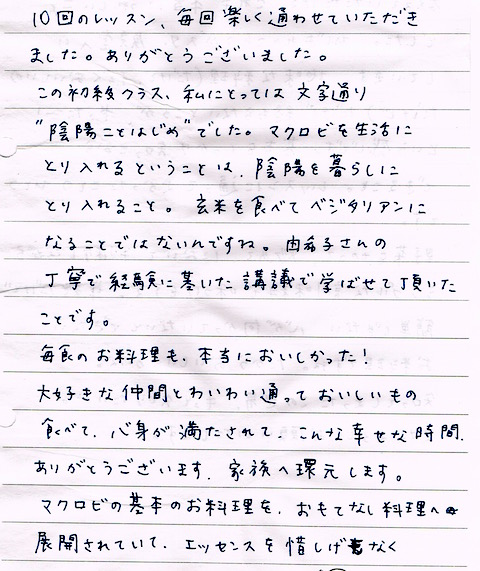 10回のレッスン、毎回楽しく通わせていただき
ました。ありがとうございました。
この初級クラス、私にとっては文字通り
"陰陽ことはじめ"でした。マクロビを生活に
とり入れるということは、陰陽を暮らしに
とり入れること。玄米を食べてベジタリアンに
なることではないんですね。由希子さんの
丁寧で経験に基いた講議で学ばせて頂いた
ことです。
毎食のお料理も、本当においしかった！
大好きな仲間とわいわい通っておいしいもの
食べて、心身が満たされて、こんな幸せな時間、
ありがとうございます、家族へ還元します。
マクロビの基本のお料理を、おもてなし料理へ
展開されていて、エッセンスを惜しげなく